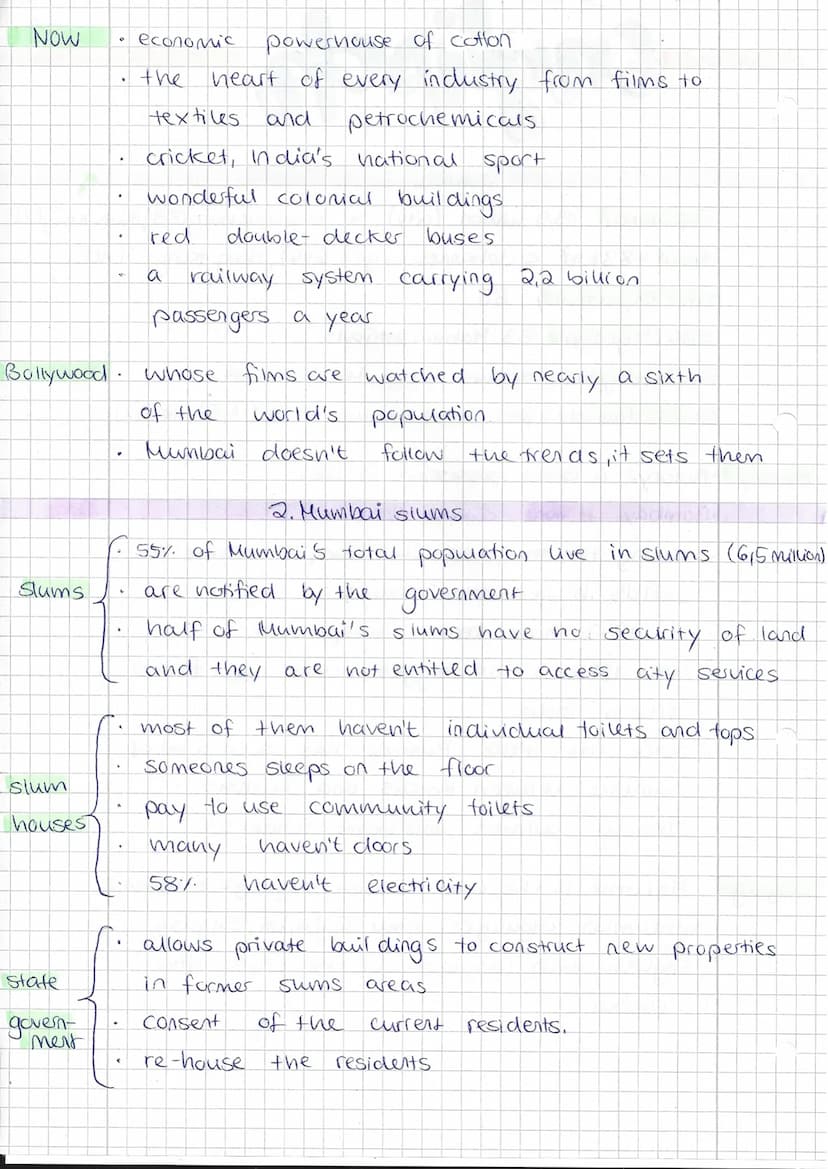 NOW · economic powerhouse of cotton
· the heart of every industry from films to
textiles and petrochemicals
· cricket, India's national sport
· wonderful colonial buildings
· red double-decker buses
- a railway system carrying 2,2 billion
passengers a year
Bollywood · whose films are watched by nearly a sixth
of the world's population
· Mumbai doesn't follow the trends, it sets them
2. Mumbai slums
· 55% of Mumbai's total population live in slums (6,5 million)
Slums · are notified by the government
· half of Mumbai's slums have no security of land
and they are not entitled to access city services
· most of them haven't individual toilets and tops
· someones sleeps on the floor
slum
houses · pay to use community toilets
· many haven't doors
· 58% haven't electricity
· allows private buildings to construct new properties
state in former sums areas
govern-
ment · consent of the current residents.
· re-house the residents